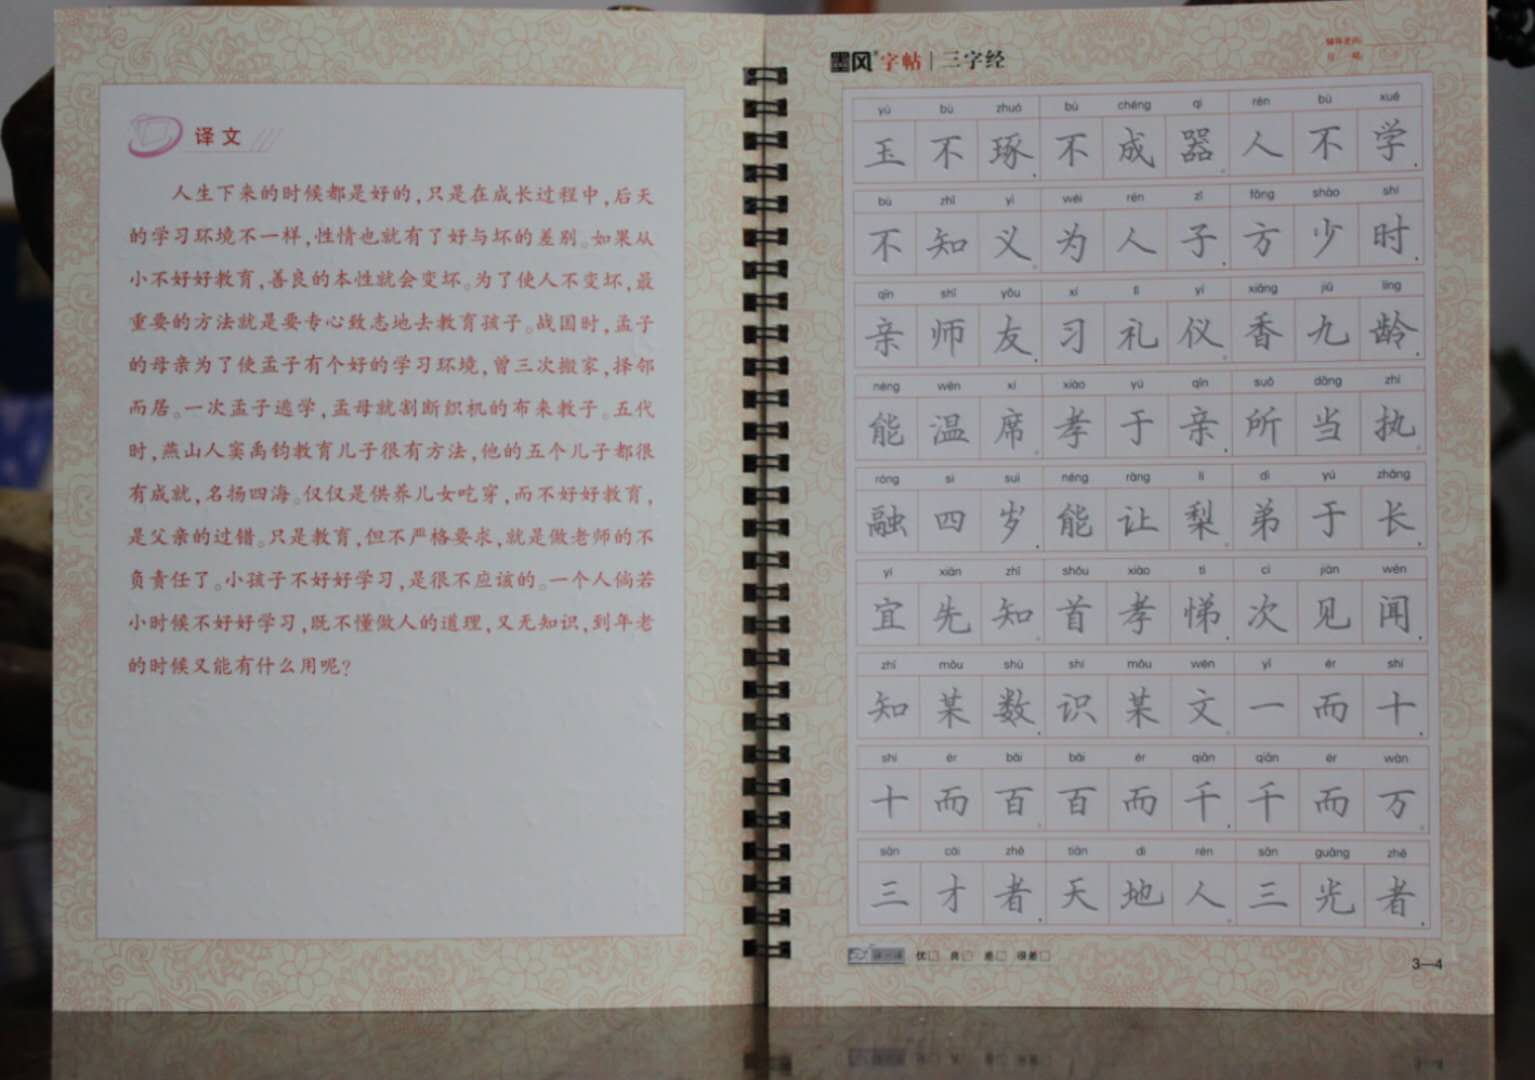 译文
人生下来的时候都是好的,只是在成长过程中,后天
的学习环境不一样,性情也就有了好与坏的差别。如果从
小不好好教育,善良的本性就会变坏。为了使人不变坏,最
重要的方法就是要专心致志地去教育孩子。战国时,孟子
的母亲为了使孟子有个好的学习环境,曾三次搬家,择邻
而居。一次孟子逃学,孟母就割断织机的布来教子。五代
时,燕山人窦禹钧教育儿子很有方法,他的五个儿子都很
有成就,名扬四海。仅仅是供养儿女吃穿,而不好好教育,
是父亲的过错。只是教育,但不严格要求,就是做老师的不
负责任了。小孩子不好好学习,是很不应该的。一个人倘若
小时候不好好学习,既不懂做人的道理,又无知识,到年老
的时候又能有什么用呢?
墨风字帖|三字经
yù bù zhuó bù chéng qì rén bù xué
玉不琢,不成器。人不学,
bù zhī yì wéi rén zǐ fāng shào shí
不知义。为人子,方少时,
qīn shī yǒu xí lǐ yí xiāng jiǔ líng
亲师友,习礼仪。香九龄,
néng wēn xí xiào yú qīn suǒ dāng zhí
能温席。孝于亲,所当执。
róng sì suì néng ràng lí dì yú zhǎng
融四岁,能让梨。弟于长,
yí xiān zhī shǒu xiào tì cì jiàn wén
宜先知。首孝悌,次见闻,
zhī mǒu shù shí mǒu wén yī ér shí
知某数,识某文。一而十,
shí ér bǎi bǎi ér qiān qiān ér wàn
十而百。百而千,千而万。
sān cái zhě tiān dì rén sān guāng zhě
三才者,天地人。三光者,
优□ 良□ 差□ 很差□
3—4